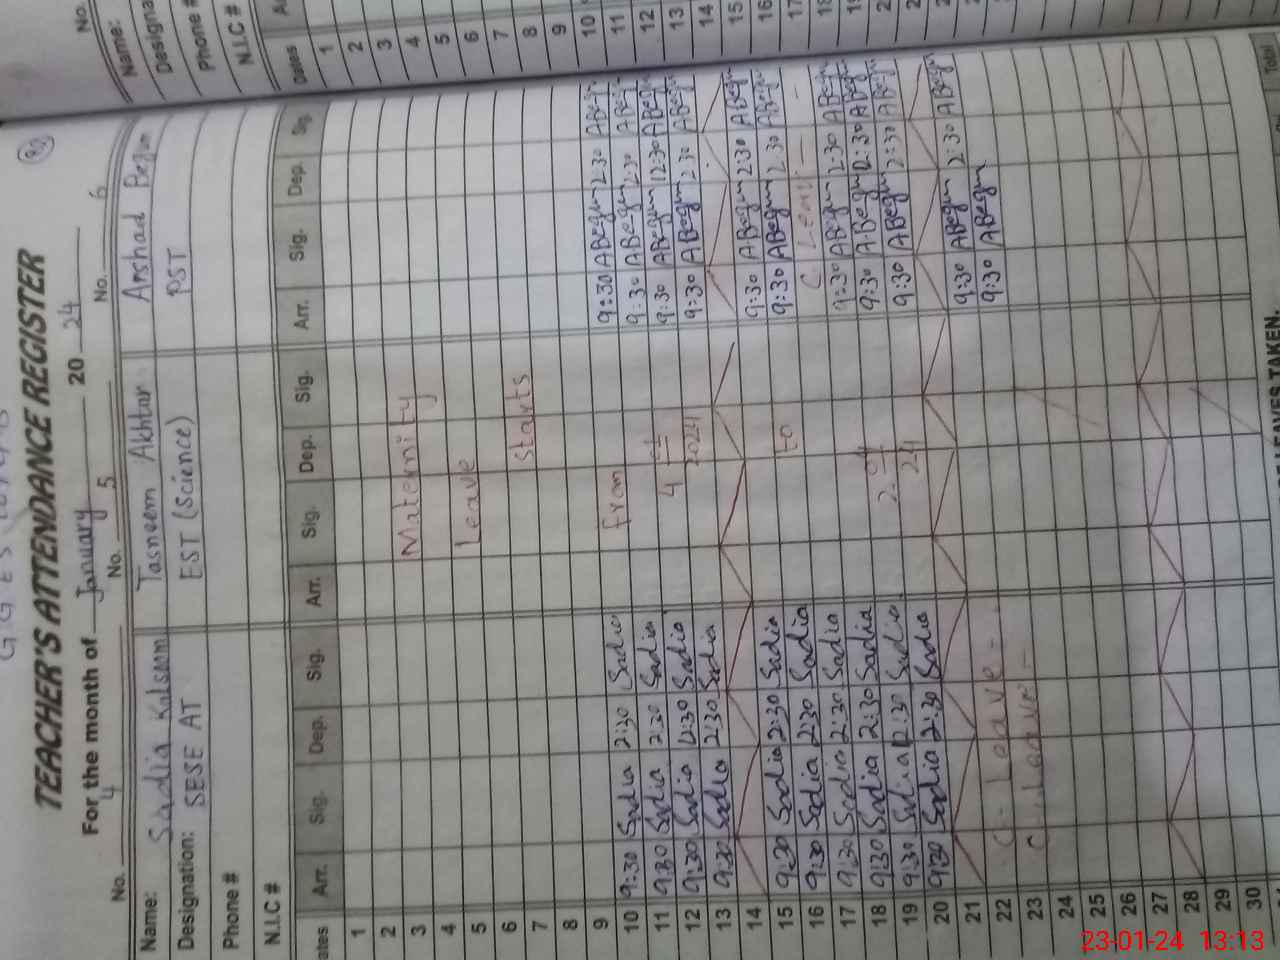 TEACHER'S ATTENDANCE REGISTER
For the month of January 20 24
No. 4 No. 5 No. 6
Name: Sadia Kalsoom Tasneem Akhtar Arshad Begum
Designation: SESE AT EST (Science) PST
Phone #
N.I.C #
Dates Arr. Sig. Dep. Sig. Arr. Sig. Dep. Sig. Arr. Sig. Dep. Sig.
1
2
3 Maternity
4
5 Leave
6
7 Starts
8
9
10 9:30 Sadia 2:30 Sadia from 9:30 ABegum 2:30 ABegum
11 9:30 Sadia 2:30 Sadia 9:30 ABegum 2:30 ABegum
12 9:30 Sadia 12:30 Sadia 4 01 9:30 ABegum 12:30 ABegum
13 9:30 Sadia 2:30 Sadia 2024 9:30 ABegum 2:30 ABegum
14
15 9:30 Sadia 2:30 Sadia 9:30 ABegum 2:30 ABegum
16 9:30 Sadia 2:30 Sadia to 9:30 ABegum 2:30 ABegum
17 9:30 Sadia 2:30 Sadia C. Leave
18 9:30 Sadia 2:30 Sadia 9:30 ABegum 2:30 ABegum
19 9:30 Sadia 12:30 Sadia 9:30 ABegum 12:30 ABegum
20 9:30 Sadia 2:30 Sadia 24 9:30 ABegum 2:30 ABegum
21
22 C. Leave - 9:30 ABegum 2:30 ABegum
23 C. Leave - 9:30 ABegum
24
25
26
27
28
29
30
LEAVES TAKEN.
Total
No.
Name:
Designa
Phone #
N.I.C #
Dates
1
2
3
4
5
6
7
8
9
10
11
12
13
14
15
16
17
23-01-24 13:13